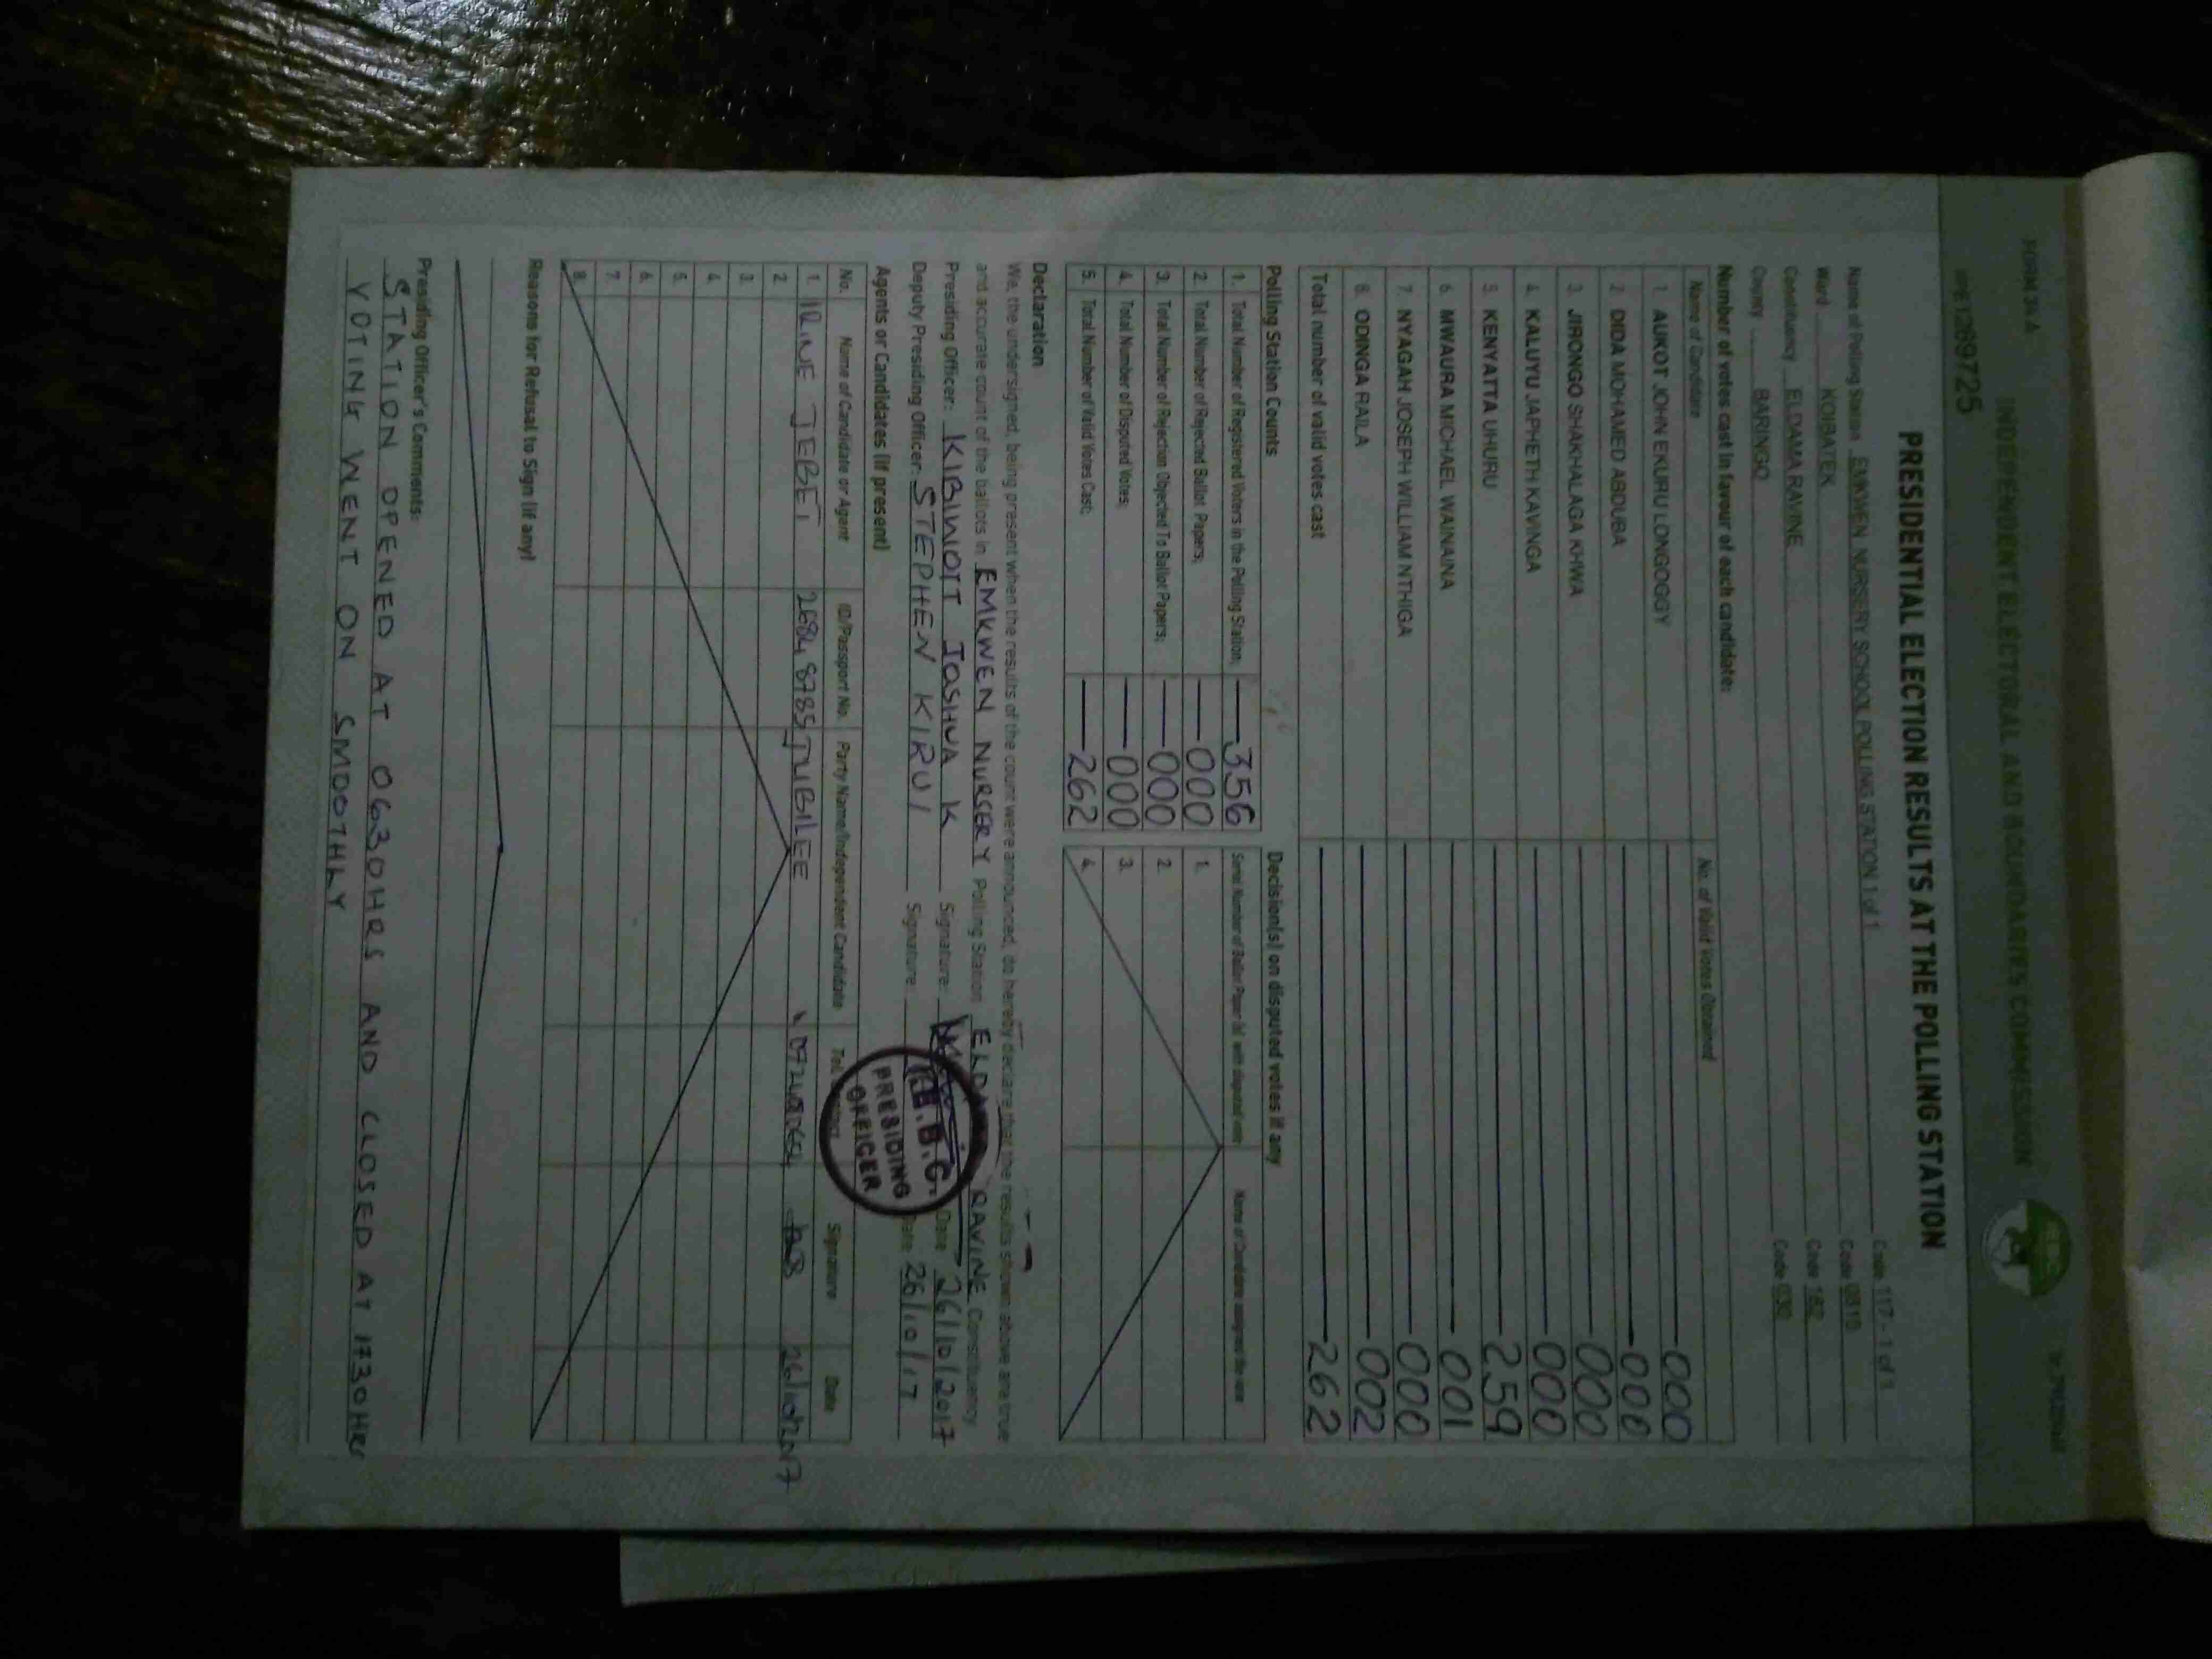 FORM 34 A
INDEPENDENT ELECTORAL AND BOUNDARIES COMMISSION
IEBC
PRESIDENTIAL ELECTION RESULTS AT THE POLLING STATION
Name of Polling Station EMKWEN NURSERY SCHOOL POLLING STATION 1 of 1 Code 117 - 1 of 1
Ward KOIBATEK Code 0810
Constituency ELDAMA RAVINE Code 162
County BARINGO Code 030
Number of votes cast in favour of each candidate:
Name of Candidate No. of Valid Votes Obtained
1. AUKOT JOHN EKURU LONGOGGY 000
2. DIDA MOHAMED ABDUBA 000
3. JIRONGO SHAKHALAGA KHWA 000
4. KALUYU JAPHETH KAVINGA 000
5. KENYATTA UHURU 259
6. MWAURA MICHAEL WAINAINA 001
7. NYAGAH JOSEPH WILLIAM NTHIGA 000
8. ODINGA RAILA 002
Total number of valid votes cast 262
Polling Station Counts
1. Total Number of Registered Voters in the Polling Station; 356
2. Total Number of Rejected Ballot Papers; 000
3. Total Number of Rejection Objected To Ballot Papers; 000
4. Total Number of Disputed Votes; 000
5. Total Number of Valid Votes Cast; 262
Decision(s) on disputed votes if any
Serial Number of Ballot Paper (s) with disputed vote Name of Candidate assigned the vote
1.
2.
3.
4.
Declaration
We, the undersigned, being present when the results of the count were announced, do hereby declare that the results shown above are true
and accurate count of the ballots in EMKWEN NURSERY Polling Station ELDAMA RAVINE Constituency
Presiding Officer: KIBIWOTT JOSHUA K Signature: Date 26/10/2017
Deputy Presiding Officer: STEPHEN KIRUI Signature: Date 26/10/17
I.E.B.C.
PRESIDING
OFFICER
Agents or Candidates (if present)
No. Name of Candidate or Agent ID/Passport No. Party Name/Independent Candidate Tel. Signature Date
1. IRINE JEBET 26848785 JUBILEE 26/10/2017
2.
3.
4.
5.
6.
7.
8.
Reasons for Refusal to Sign (if any)
Presiding Officer's Comments:
STATION OPENED AT 0630HRS AND CLOSED AT 1730HRS
VOTING WENT ON SMOOTHLY